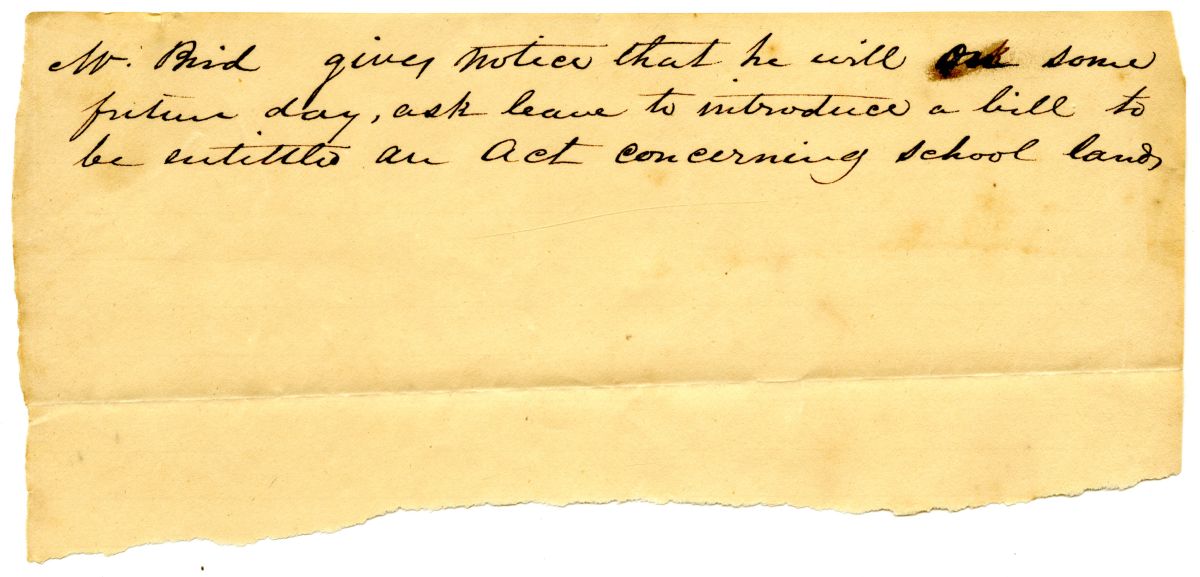 Mr. Bird gives notice that he will on some
future day, ask leave to introduce a bill to
be entittled an Act concerning school lands